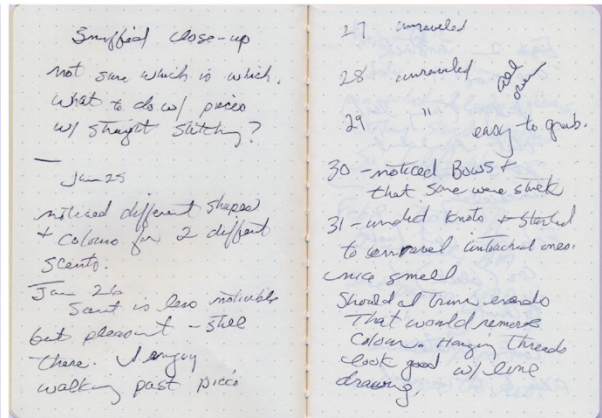 Sniffed close-up
not sure which is which.
what to do w/ pieces
w/ straight stitching?
Jan 25
noticed different shapes
+ colours for 2 different
scents.
Jan 26
Scent is less noticable
but pleasant - still
there. I enjoy
walking past piece
27 unraveled
28 unraveled add over
29 " easy to grab.
30 - noticed Bows +
that some were stuck
31 - undid knots + started
to unravel ones.
nice smell
Should I trim ends
That would remove
Colour. Hanging threads
look good w/ line
drawing.